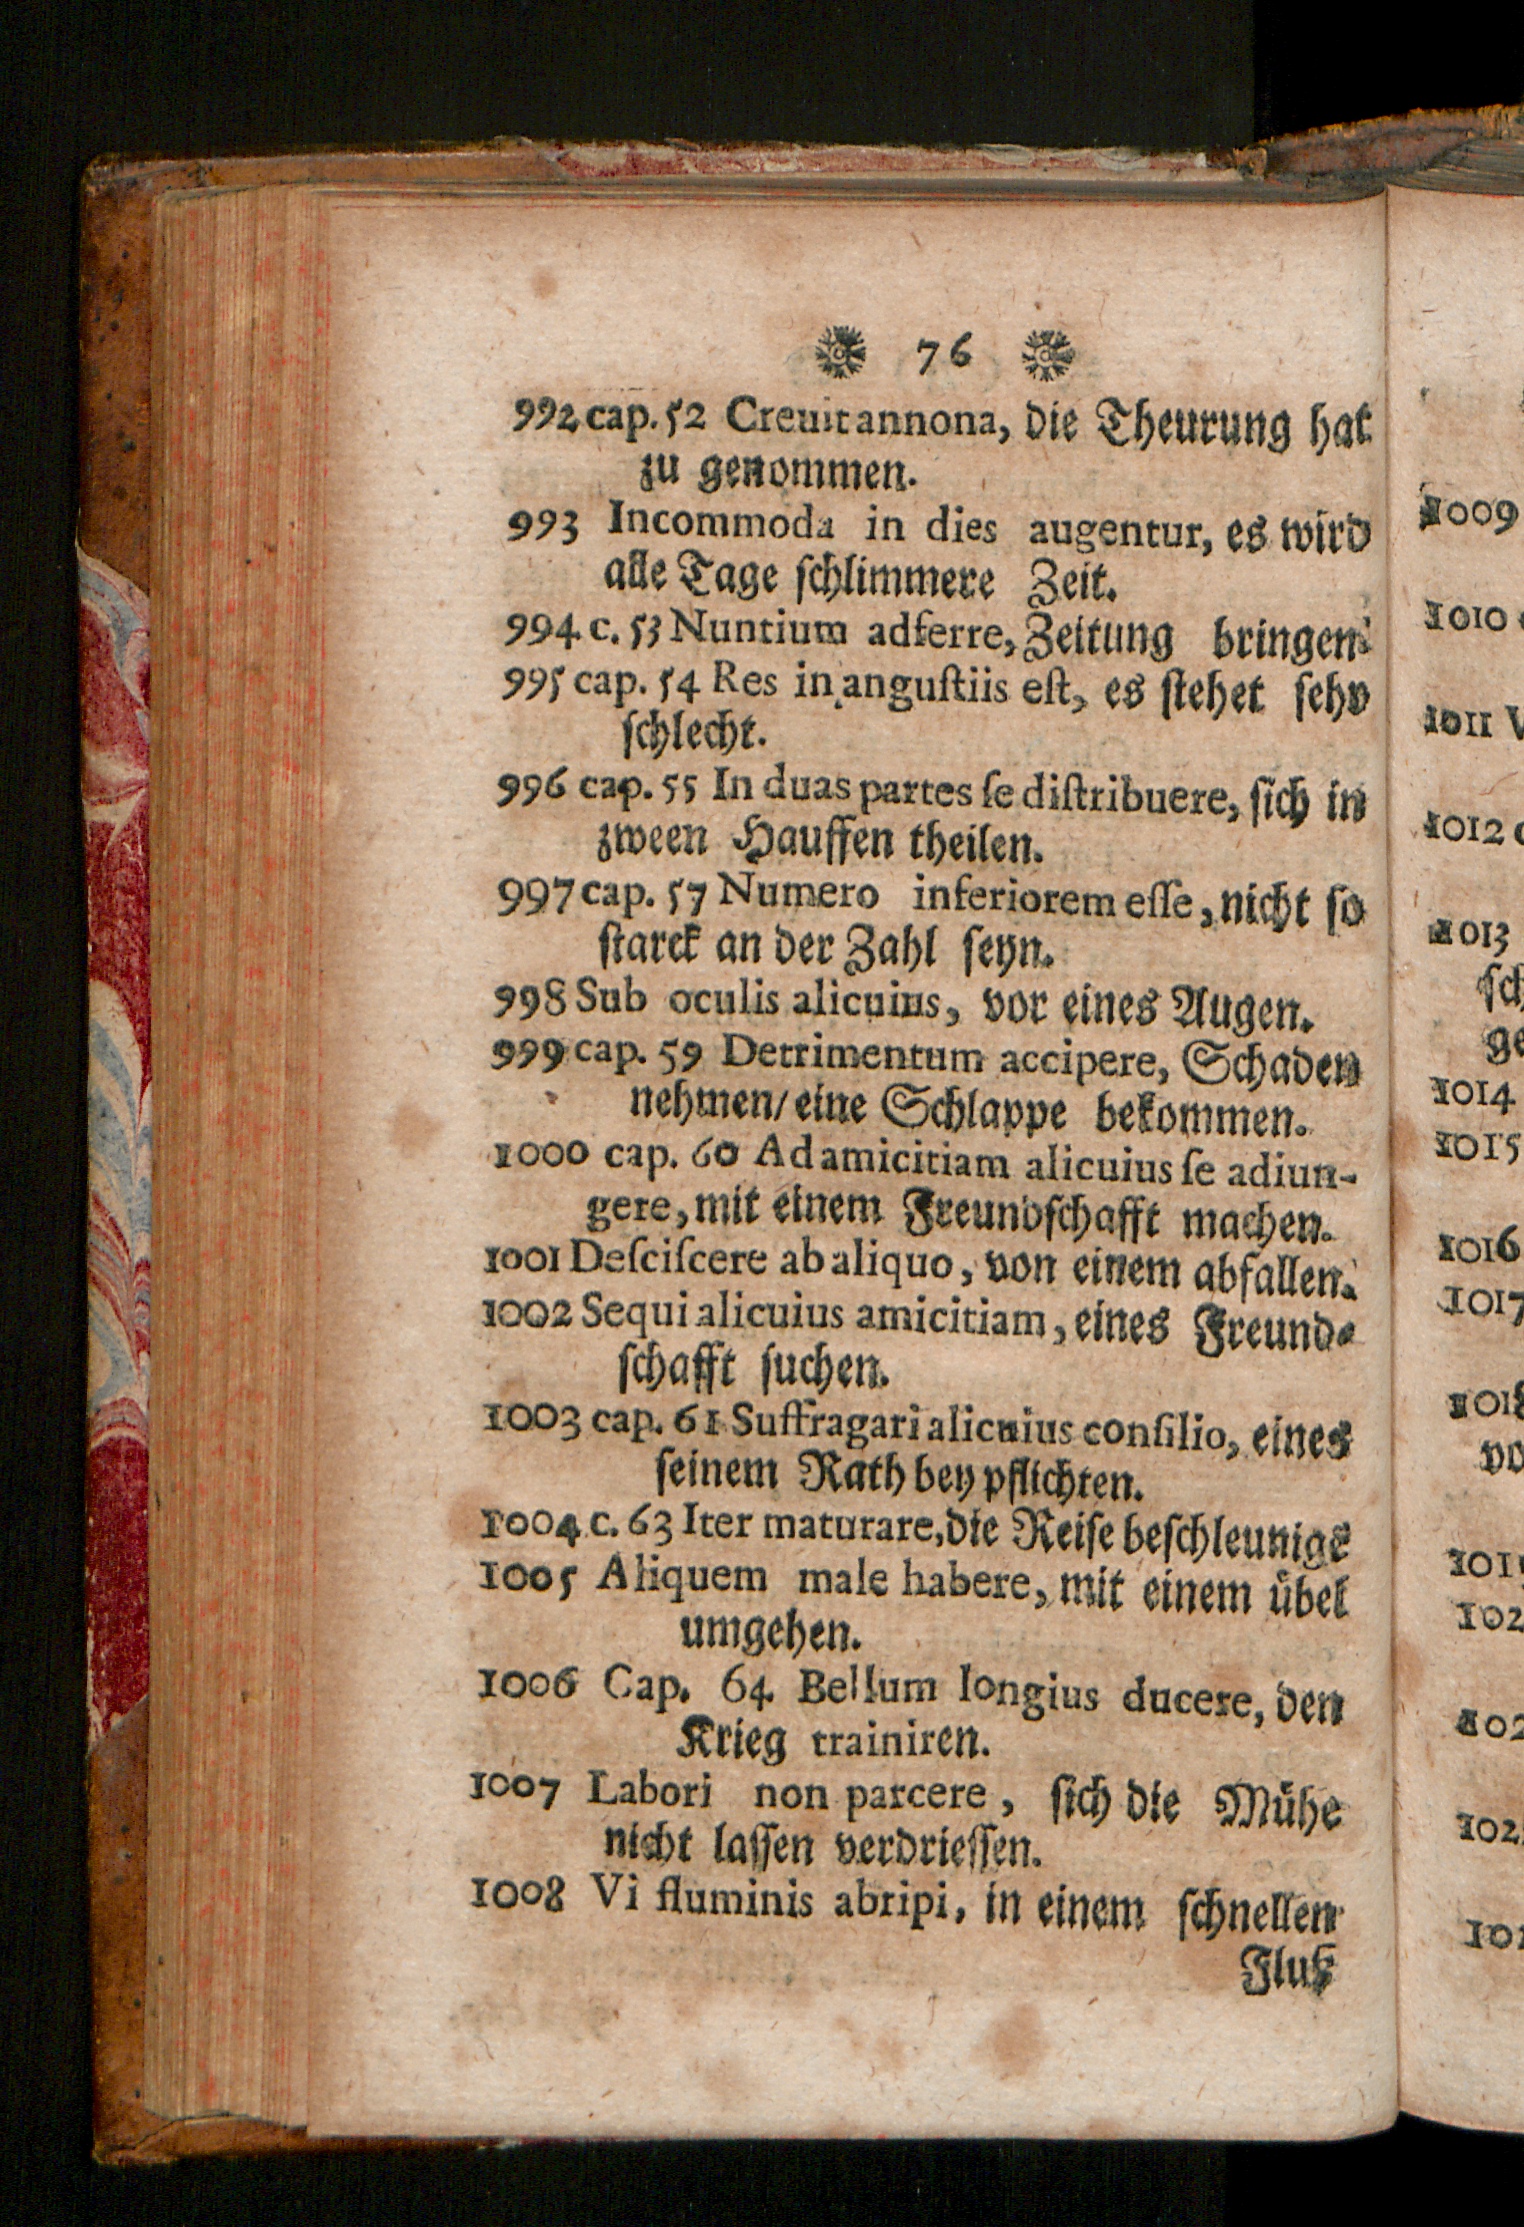 76
992 cap. 52 Creuit annona, die Theurung hat
zu genommen.
993 Incommoda in dies augentur, es wird
alle Tage ſchlimmere Zeit.
994 c. 53 Nuntium adferre, Zeitung bringen.
995 cap. 54 Res in anguſtiis eſt, es ſtehet ſehr
ſchlecht.
996 cap. 55 In duas partes ſe diſtribuere, ſich in
zween Hauffen theilen.
997 cap. 57 Numero inferiorem eſſe, nicht ſo
ſtarck an der Zahl ſeyn.
998 Sub oculis alicuius, vor eines Augen.
999 cap. 59 Detrimentum accipere, Schaden
nehmen/ eine Schlappe bekommen.
1000 cap. 60 Ad amicitiam alicuius ſe adiun-
gere, mit einem Freundſchafft machen.
1001 Deſciſcere ab aliquo, von einem abfallen.
1002 Sequi alicuius amicitiam, eines Freund-
ſchafft ſuchen.
1003 cap. 61 Suffragari alicuius conſilio, eines
ſeinem Rath bey pflichten.
1004 c. 63 Iter maturare, die Reiſe beſchleunigē
1005 Aliquem male habere, mit einem übel
umgehen.
1006 Cap. 64. Bellum longius ducere, den
Krieg trainiren.
1007 Labori non parcere, ſich die Mühe
nicht laſſen verdrieſſen.
1008 Vi fluminis abripi, in einem ſchnellen
Fluß
1009
1010
1011
1012
1013
ſch
ge
1014
1015
1016
1017
vo